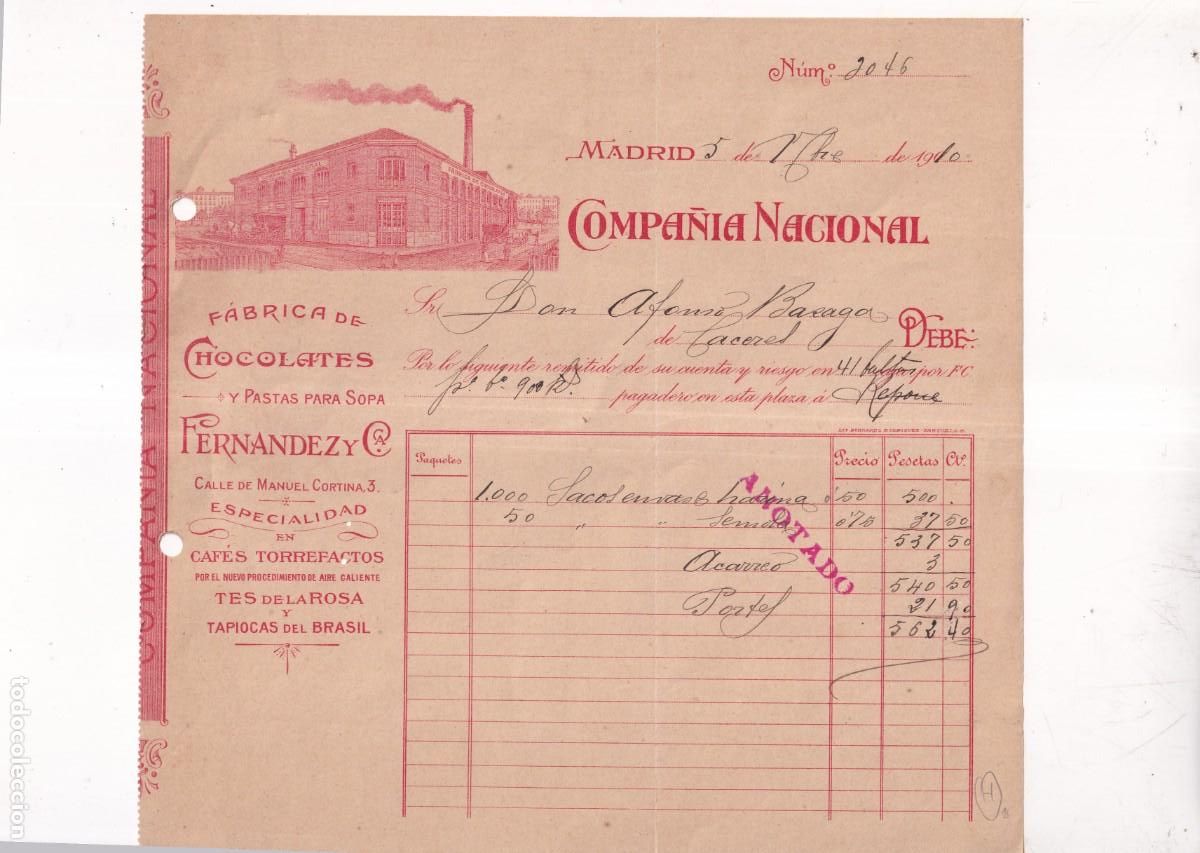 Núm.o 2046
MADRID 5 de 7bre de 1910
COMPAÑIA NACIONAL
Sr. Don Afonso Bazaga
de Caceres DEBE:
Por lo siguiente remitido de su cuenta y riesgo en 41 bultos por F.C.
pº bº 900 K. pagadero en esta plaza á Repone
FÁBRICA DE
CHOCOLATES
Y PASTAS PARA SOPA
FERNANDEZ Y CA.
CALLE DE MANUEL CORTINA, 3.
ESPECIALIDAD
EN
CAFÉS TORREFACTOS
POR EL NUEVO PROCEDIMIENTO DE AIRE CALIENTE
TES DE LA ROSA
Y
TAPIOCAS DEL BRASIL
COMPAÑIA NACIONAL
Paquetes Precio Pesetas Cs.
1.000 Sacos envase harina 0'50 500 .
50 " " Semola 0'75 37 50
537 50
Acarreo 3
540 50
Portes 21 90
562 40
ANOTADO
H
todocoleccion